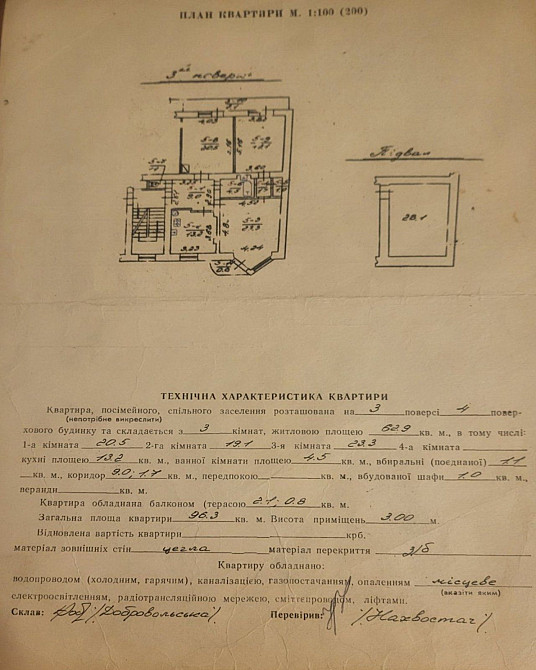 ПЛАН КВАРТИРИ М. 1:100 (200)
3ий поверх
Підвал
20.1
4.24
3.23
ТЕХНІЧНА ХАРАКТЕРИСТИКА КВАРТИРИ
Квартира, посімейного, спільного заселення розташована на 3 поверсі 4 повер-
(непотрібне викреслити)
хового будинку та складається з 3 кімнат, житловою площею 62.9 кв. м., в тому числі:
1-а кімната 20.5 2-га кімната 19.1 3-я кімната 23.3 4-а кімната
кухні площею 13.2 кв. м., ванної кімнати площею 4.5 кв. м., вбиральні (поєднаної) 1.1
кв. м., коридор 9.0; 1.7 кв. м., передпокою кв. м., вбудованої шафи 1.0 кв. м.,
веранди кв. м.
Квартира обладнана балконом (терасою 2.1; 0.8 кв. м.
Загальна площа квартири 96.3 кв. м. Висота приміщень 3.00 м.
Відновлена вартість квартири крб.
матеріал зовнішніх стін цегла матеріал перекриття з/б
Квартиру обладнано:
водопроводом (холодним, гарячим), каналізацією, газопостачанням, опаленням місцеве
(вказати яким)
електроосвітленням, радіотрансляційною мережею, сміттєпроводом, ліфтами.
Склав: /Добровольська/ Перевірив: /Нахвостач/